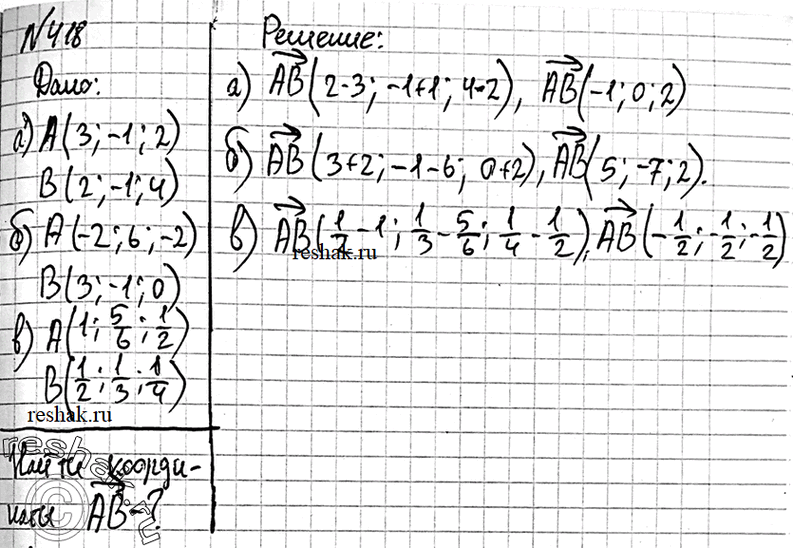 №418
Дано:
а) A(3; -1; 2)
B(2; -1; 4)
б) A(-2; 6; -2)
B(3; -1; 0)
в) A(1; 5/6; 1/2)
B(1/2; 1/3; 1/4)
reshak.ru
Найти коорди-
наты AB⃗ - ?
Решение:
а) AB⃗(2-3; -1+1; 4-2), AB⃗(-1; 0; 2)
б) AB⃗(3+2; -1-6; 0+2), AB⃗(5; -7; 2).
в) AB⃗(1/2 - 1; 1/3 - 5/6; 1/4 - 1/2), AB⃗(-1/2; -1/2; -1/2)
reshak.ru
reshak.ru